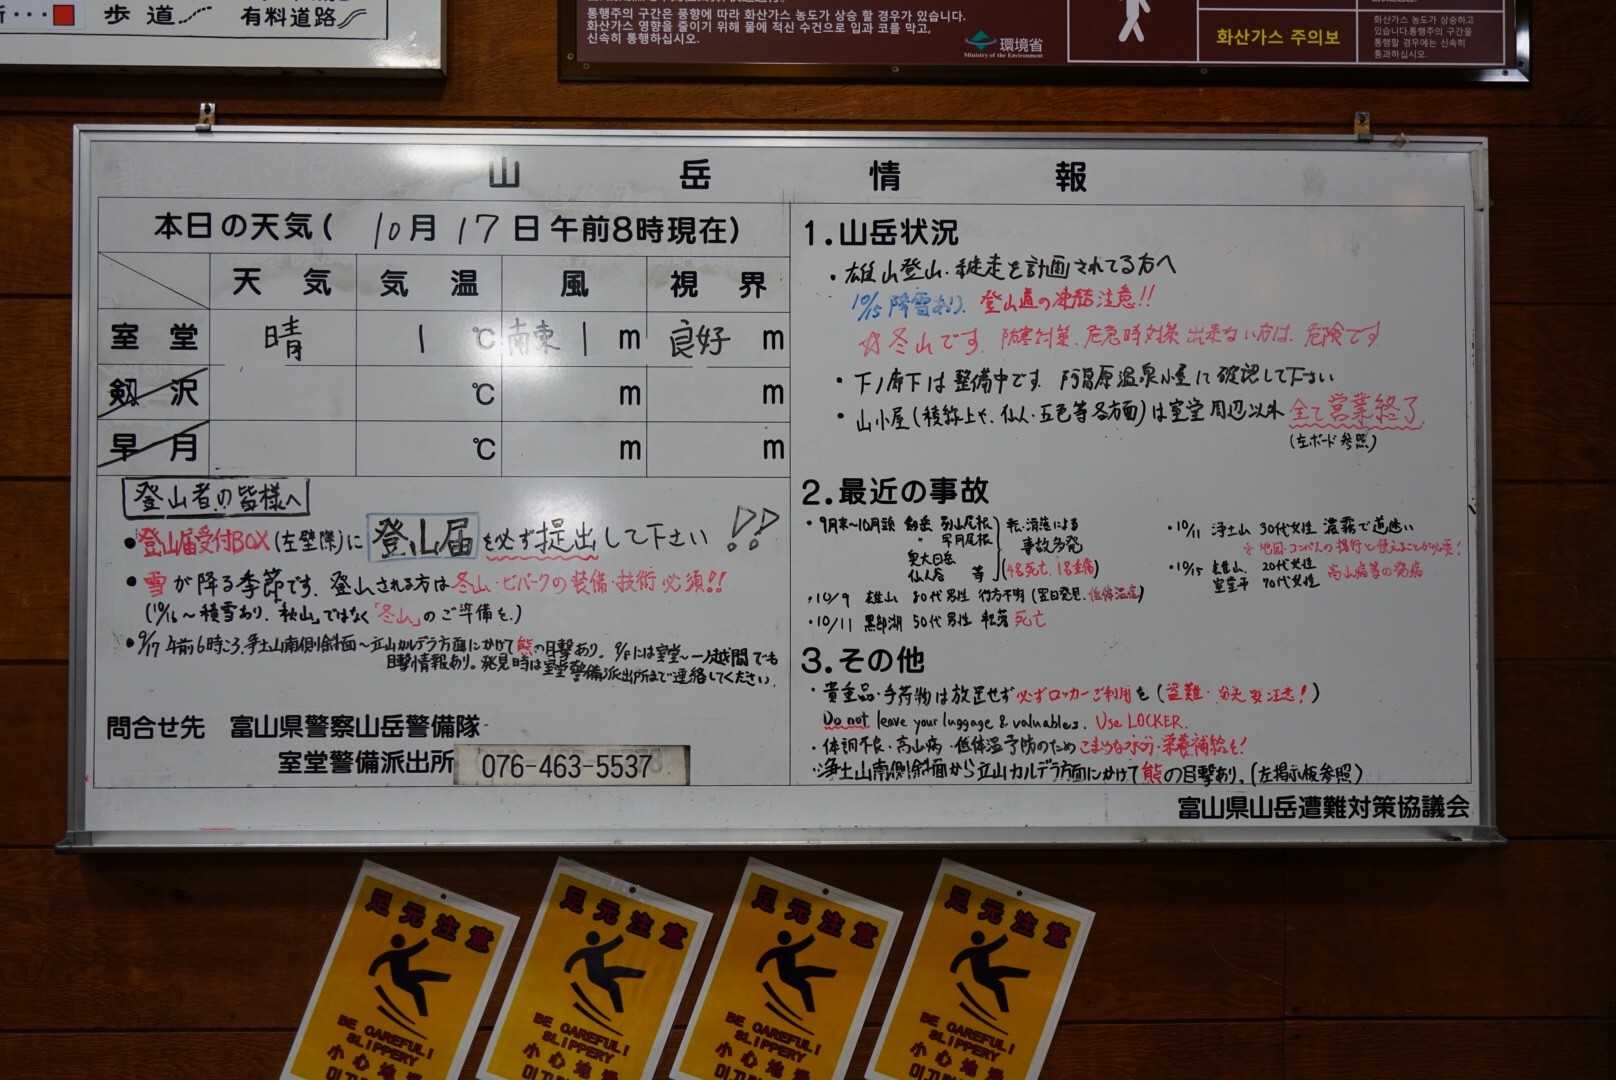 歩道
有料道路
통행주의 구간은 풍향에 따라 화산가스 농도가 상승 할 경우가 있습니다.
화산가스 영향을 줄이기 위해 물에 적신 수건으로 입과 코를 막고,
신속히 통행하십시오.
環境省
Ministry of the Environment
화산가스 주의보
화산가스 농도가 상승하고
있습니다.통행주의 구간을
통행할 경우에는 신속히
통과하십시오.
山岳情報
本日の天気( 10月 17日 午前8時現在)
天気 気温 風 視界
室堂 晴 1℃ 南東 1m 良好 m
剱沢 ℃ m m
早月 ℃ m m
登山者の皆様へ
●登山届受付BOX(左壁際)に 登山届を必ず提出して下さい!!
●雪が降る季節です。登山される方は冬山・ビバークの装備・技術必須!!
(10/16〜積雪あり。「秋山」ではなく「冬山」のご準備を。)
●9/17 午前6時ころ、浄土山南側斜面〜立山カルデラ方面にかけて熊の目撃あり。9/8には室堂〜一ノ越間でも
目撃情報あり。発見時は室堂警備派出所まで連絡してください。
問合せ先 富山県警察山岳警備隊
室堂警備派出所 076-463-5537
1.山岳状況
・雄山登山・縦走を計画されてる方へ
10/15 降雪あり。登山道の凍結注意!!
☆冬山です。防寒対策、危急時対策出来ない方は、危険です
・下ノ廊下は整備中です。阿曽原温泉小屋に確認して下さい
・山小屋(稜線上や、仙人・五色等各方面)は室堂周辺以外 全て営業終了
(左ボード参照)
2.最近の事故
・9月末〜10月頭 剱岳 別山尾根
〃 早月尾根
奥大日岳
仙人谷 等
転・滑落による
事故多発
(4名死亡、1名重傷)
・10/9 雄山 80代男性 行方不明 (翌日発見、低体温症)
・10/11 黒部湖 50代男性 転落 死亡
・10/11 浄土山 30代女性 濃霧で道迷い
※地図・コンパスの携行と使えることが必要!
・10/15 雄山 20代女性
室堂平 70代女性 高山病等の発病
3.その他
・貴重品・手荷物は放置せず必ずロッカーご利用を(盗難・
Do not leave your luggage & valuables. Use LOCKER.
・体調不良・高山病・低体温予防のためこまめな水分・栄養補給を!
・浄土山南側斜面から立山カルデラ方面にかけて熊の目撃あり。(左掲示板参照)
富山県山岳遭難対策協議会
足元注意
BE CAREFUL!
SLIPPERY
小心地滑
足元注意
BE CAREFUL!
SLIPPERY
小心地滑
足元注意
BE CAREFUL!
SLIPPERY
小心地滑
足元注意
BE CAREFUL!
SLIPPERY
小心地滑